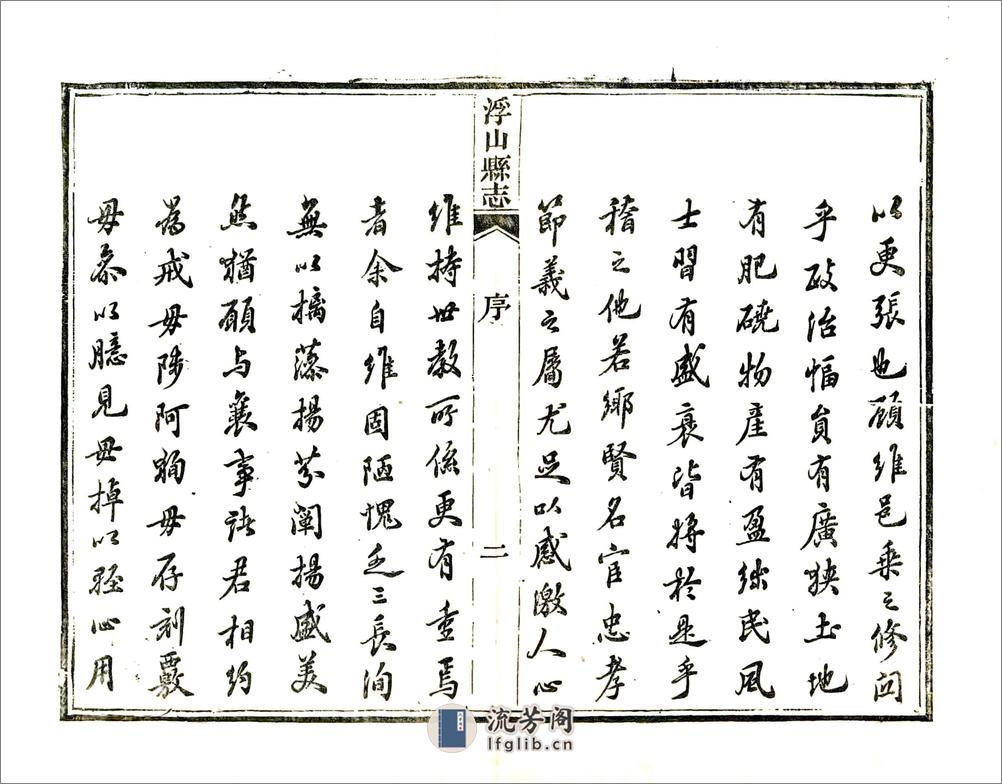 以更張也顧維邑乘之修関
乎政治幅員有廣狹土地
有肥磽物產有盈絀民風
士習有盛衰皆將於是乎
稽之他若鄉賢名宦忠孝
節義之屬尤足以感激人心
浮山縣志
序
二
維持世教所係更有重焉
者余自維固陋愧乏三長洵
無以摛藻揚芬闡揚盛美
然猶願与襄事諸君相約
為戒毋涉阿徇毋存刻覈
毋參以臆見毋掉以輕心用
流芳阁
lfglib.cn